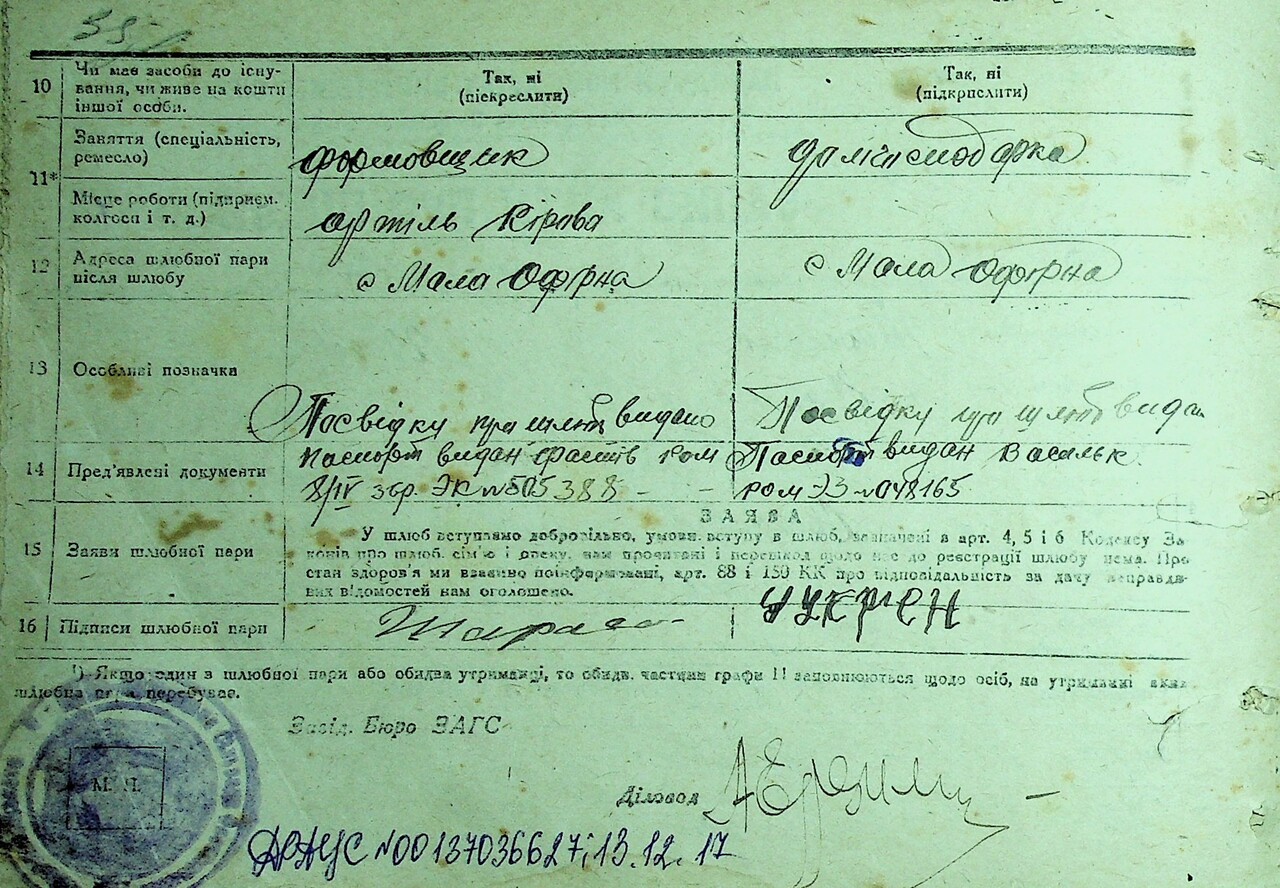 10 Чи має засоби до існування, чи живе на кошти іншої особи.
Так, ні
(піскреслити)
Так, ні
(підкрпслити)
11* Заняття (спеціальність, ремесло)
формовщик
домгосподарка
Місце роботи (підприєм. колгосп і т. д.)
артіль Кірова
12 Адреса шлюбної пари після шлюбу
с Мала Офірна
с Мала Офірна
13 Особливі позначка
Посвідку про шлюб видано
Посвідку про шлюб видан
14 Пред'явлені документи
паспорт видан Фастів ром
8/IV 3бр. ЭК №505388 - -
Паспорт видан Васильк.
ром ЭЗ №048165
15 Заяви шлюбної пари
ЗАЯВА
У шлюб вступаємо добровільно, умови вступу в шлюб, зазначені в арт. 4, 5 і 6 Кодексу За
конів про шлюб, сім'ю і опеку, нам прочитані і перешкод щодо нас до реєстрації шлюбу нема. Про
стан здоров'я ми взаємно поінформовані, арт. 88 і 150 КК про відповідальність за дачу неправди-
вих відомостей нам оголошено.
16 Підписи шлюбної пари
¹) Якщо один з шлюбної пари або обидва утриманці, то обидв. частини графи 11 заповнюються щодо осіб, на утриманні яких
шлюбна пара перебуває.
Завід. Бюро ЗАГС
М. П.
Діловод
ДРАЦС №00137036627; 13.12.17